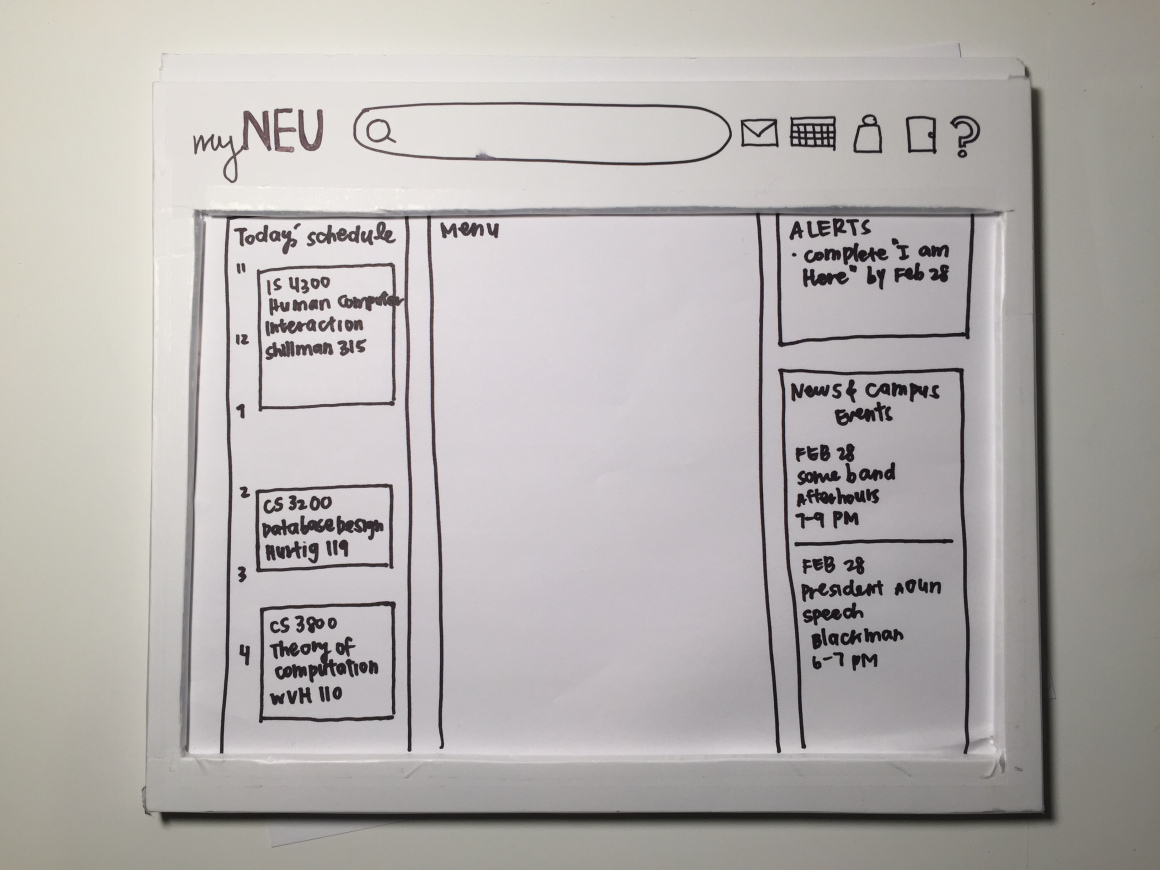 my NEU
Today's schedule
11
IS 4300
Human Computer
Interaction
12
Shillman 315
1
2
CS 3200
Database Design
Hurtig 119
3
CS 3800
Theory of
4
computation
WVH 110
Menu
ALERTS
· complete "I am
Here" by Feb 28
News & Campus
Events
FEB 28
some band
Afterhours
7-9 PM
FEB 28
President Aoun
speech
Blackman
6-7 PM